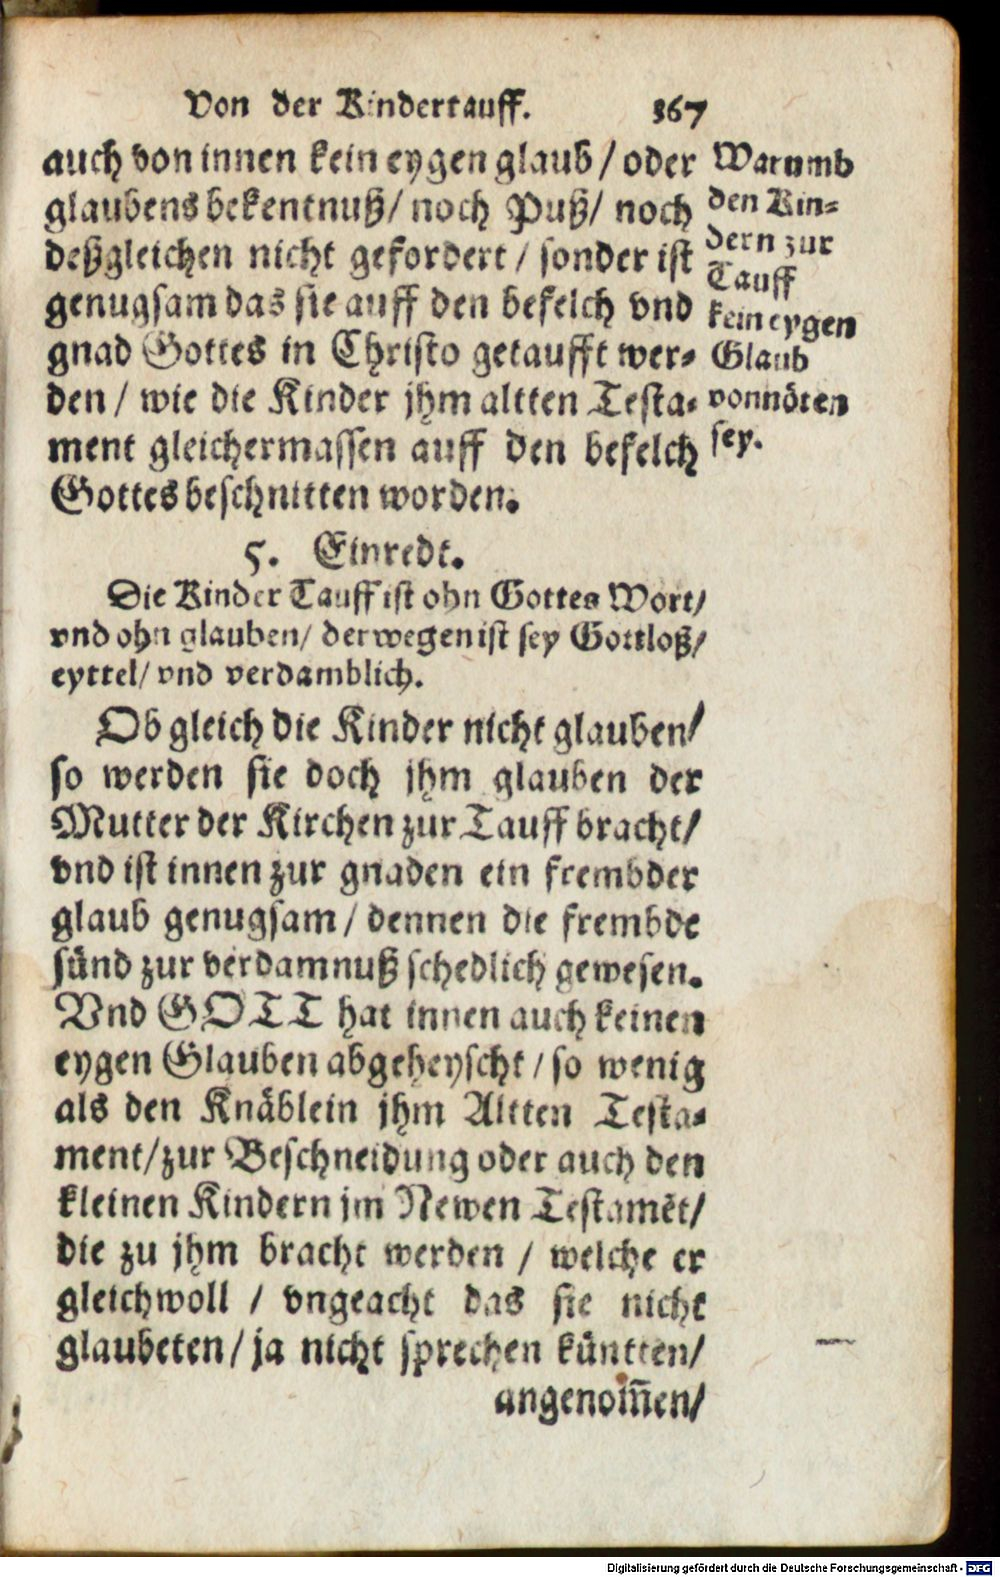 Von der Kindertauff. 367
auch von innen kein eygen glaub / oder
glaubens bekentnuß / noch Puß / noch
deßgleichen nicht gefordert / sonder ist
genugsam das sie auff den befelch vnd
gnad Gottes in Christo getaufft wer-
den / wie die Kinder jhm altten Testa-
ment gleichermassen auff den befelch
Gottes beschnitten worden.
Warumb
den Kin-
dern zur
Tauff
kein eygen
Glaub
vonnöten
sey.
5. Einredt.
Die Kinder Tauff ist ohn Gottes Wort /
vnd ohn glauben / derwegen ist sey Gottloß /
eyttel / vnd verdamblich.
Ob gleich die Kinder nicht glauben /
so werden sie doch jhm glauben der
Mutter der Kirchen zur Tauff bracht /
vnd ist innen zur gnaden ein frembder
glaub genugsam / dennen die frembde
sünd zur verdamnuß schedlich gewesen.
Vnd GOTT hat innen auch keinen
eygen Glauben abgeheyscht / so wenig
als den Knäblein jhm Altten Testa-
ment / zur Beschneidung oder auch den
kleinen Kindern jm Newen Testamēt /
die zu jhm bracht werden / welche er
gleichwoll / vngeacht das sie nicht
glaubeten / ja nicht sprechen küntten /
angenom̄en /
Digitalisierung gefördert durch die Deutsche Forschungsgemeinschaft - DFG